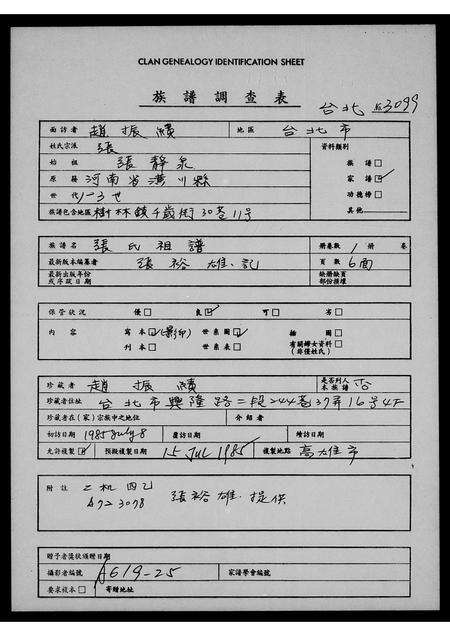 CLAN GENEALOGY IDENTIFICATION SHEET
族譜調查表
台北 № 3099
面訪者 趙振績 地區 台北市
姓氏宗派 張 資料類別
始祖 張靜泉 族譜□
原籍 河南省潢川縣 家譜☑
世代 1–3世 功德榜□
族譜包含地區 樹林鎮千歲街30巷11号 其他
族譜名 張氏祖譜 冊卷數 1 冊 卷
最新版本編纂者 張裕雄.記 頁數 6面
最新出版年份或序跋日期 缺冊缺頁部份損壞
保管狀況 優□ 良☑ 可□ 劣□
內容 寫本☑(影印) 世系圖☑ 繪圖□
刊本□ 世系表□ 有關婦女資料□(非僅姓氏)
珍藏者 趙振績 是否列入本族譜 否
珍藏者住址 台北市興隆路二段244巷37弄16号4F
珍藏者在(家)宗族中之地位 介紹者
初訪日期 1985 July 8 覆訪日期 續訪日期
允許複製☑ 預擬複製日期 15 Jul 1985 複製地點 高雄市
附註 張裕雄.提供
6723078
贈予者獎狀頒贈日期
攝影者編號 A619-25 家譜學會編號
要求複本□ 寄贈地址